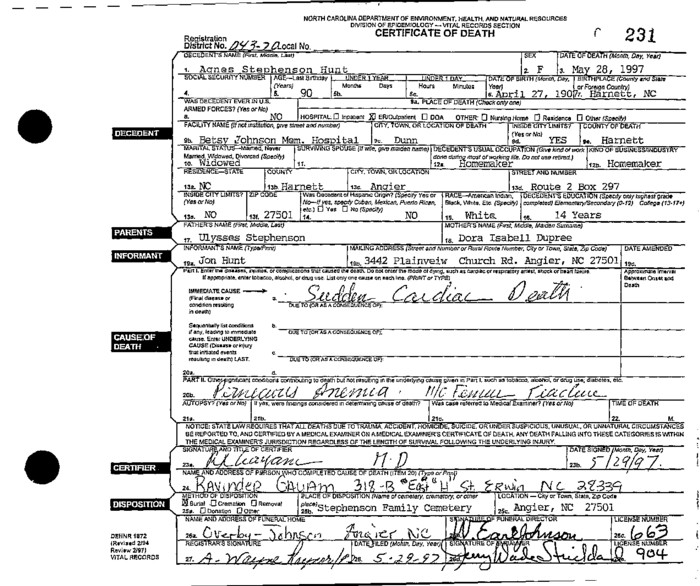 NORTH CAROLINA DEPARTMENT OF ENVIRONMENT, HEALTH, AND NATURAL RESOURCES
DIVISION OF EPIDEMIOLOGY — VITAL RECORDS SECTION
CERTIFICATE OF DEATH 231
Registration
District No. 043-20 Local No.
DECEDENT'S NAME (First, Middle, Last) SEX DATE OF DEATH (Month, Day, Year)
1. Agnes Stephenson Hunt 2. F 3. May 28, 1997
SOCIAL SECURITY NUMBER AGE—Last Birthday UNDER 1 YEAR UNDER 1 DAY DATE OF BIRTH (Month, Day, BIRTHPLACE (County and State
(Years) Months Days Hours Minutes Year) or Foreign Country)
4. 5. 90 5b. 5c. 6. April 27, 1907 7. Harnett, NC
WAS DECEDENT EVER IN U.S. 9a. PLACE OF DEATH (Check only one)
ARMED FORCES? (Yes or No)
8. NO HOSPITAL: Inpatient X ER/Outpatient DOA OTHER: Nursing Home Residence Other (Specify)
DECEDENT
FACILITY NAME (If not institution, give street and number) CITY, TOWN, OR LOCATION OF DEATH INSIDE CITY LIMITS? COUNTY OF DEATH
(Yes or No)
9b. Betsy Johnson Mem. Hospital 9c. Dunn 9d. YES 9e. Harnett
MARITAL STATUS—Married, Never SURVIVING SPOUSE (If wife, give maiden name) DECEDENT'S USUAL OCCUPATION (Give kind of work KIND OF BUSINESS/INDUSTRY
Married, Widowed, Divorced (Specify) done during most of working life. Do not use retired.)
10. Widowed 11. 12a. Homemaker 12b. Homemaker
RESIDENCE—STATE COUNTY CITY, TOWN, OR LOCATION STREET AND NUMBER
13a. NC 13b. Harnett 13c. Angier 13d. Route 2 Box 297
INSIDE CITY LIMITS? ZIP CODE Was Decedent of Hispanic Origin? (Specify Yes or RACE—American Indian, DECEDENT'S EDUCATION (Specify only highest grade
(Yes or No) No—If yes, specify Cuban, Mexican, Puerto Rican, Black, White, Etc. (Specify) completed) Elementary/Secondary (0-12) College (13-17+)
etc.) Yes No (Specify)
13e. NO 13f. 27501 14. NO 15. White 16. 14 Years
PARENTS
FATHER'S NAME (First, Middle, Last) MOTHER'S NAME (First, Middle, Maiden Surname)
17. Ulysses Stephenson 18. Dora Isabell Dupree
INFORMANT
INFORMANT'S NAME (Type/Print) MAILING ADDRESS (Street and Number or Rural Route Number, City or Town, State, Zip Code) DATE AMENDED
19a. Jon Hunt 19b. 3442 Plainveiw Church Rd. Angier, NC 27501 19c.
PART I. Enter the diseases, injuries, or complications that caused the death. Do not enter the mode of dying, such as cardiac or respiratory arrest, shock or heart failure. Approximate Interval
If appropriate, enter tobacco, alcohol, or drug use. List only one cause on each line. (PRINT or TYPE) Between Onset and
Death
IMMEDIATE CAUSE
(Final disease or a. Sudden Cardiac Death
condition resulting DUE TO (OR AS A CONSEQUENCE OF):
in death)
Sequentially list conditions b.
if any, leading to immediate DUE TO (OR AS A CONSEQUENCE OF):
cause. Enter UNDERLYING
CAUSE (Disease or injury c.
that initiated events DUE TO (OR AS A CONSEQUENCE OF):
resulting in death) LAST.
20a. d.
CAUSE OF
DEATH
PART II. Other significant conditions contributing to death but not resulting in the underlying cause given in Part I, such as tobacco, alcohol, or drug use; diabetes, etc.
20b. Pernicious Anemia
AUTOPSY? (Yes or No) If yes, were findings considered in determining cause of death? Was case referred to Medical Examiner? (Yes or No) TIME OF DEATH
21a. 21b. 21c. 22. M.
NOTICE: STATE LAW REQUIRES THAT ALL DEATHS DUE TO TRAUMA, ACCIDENT, HOMICIDE, SUICIDE, OR UNDER SUSPICIOUS, UNUSUAL, OR UNNATURAL CIRCUMSTANCES
BE REPORTED TO, AND CERTIFIED BY A MEDICAL EXAMINER ON A MEDICAL EXAMINER'S CERTIFICATE OF DEATH. ANY DEATH FALLING INTO THESE CATEGORIES IS WITHIN
THE MEDICAL EXAMINER'S JURISDICTION REGARDLESS OF THE LENGTH OF SURVIVAL FOLLOWING THE UNDERLYING INJURY.
CERTIFIER
SIGNATURE AND TITLE OF CERTIFIER DATE SIGNED (Month, Day, Year)
23a. M.D 23b. 5/29/97
NAME AND ADDRESS OF PERSON WHO COMPLETED CAUSE OF DEATH (ITEM 20) (Type or Print)
24. RAVINDER 318-B "East" "H" St. Erwin NC 28339
DISPOSITION
METHOD OF DISPOSITION PLACE OF DISPOSITION (Name of cemetery, crematory, or other LOCATION — City or Town, State, Zip Code
X Burial Cremation Removal place)
25a. Donation Other 25b. Stephenson Family Cemetery 25c. Angier, NC 27501
NAME AND ADDRESS OF FUNERAL HOME SIGNATURE OF FUNERAL DIRECTOR LICENSE NUMBER
26a. Overby-Johnson Angier NC W. Earl Johnson 663
REGISTRAR'S SIGNATURE DATE FILED (Month, Day, Year) SIGNATURE OF EMBALMER LICENSE NUMBER
27. A. Wayne 28. 5-29-97 Jerry Wade Strickland 904
DEHNR 1872
(Revised 2/94
Review 2/97)
VITAL RECORDS